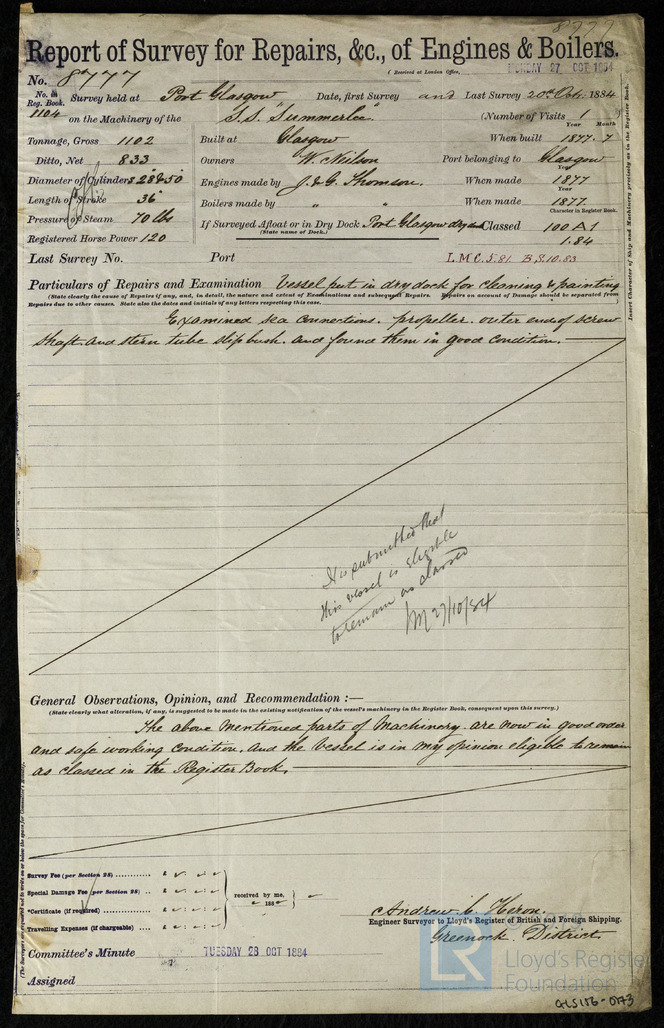 8777
Report of Survey for Repairs, &c., of Engines & Boilers.
(Received at London Office, MONDAY 27 OCT 1884
No. 8777
No. in Reg. Book. 1104 Survey held at Port Glasgow Date, first Survey and Last Survey 20th Oct. 1884
on the Machinery of the S.S. "Summerlee" (Number of Visits 1)
Tonnage, Gross 1102 Built at Glasgow When built Year Month 1877.7
Ditto, Net 833 Owners W. Neilson Port belonging to Glasgow
Diameter of Cylinders 28 & 50 Engines made by J. & G. Thomson. When made Year 1877
Length of Stroke 36" Boilers made by " " When made Year 1877.
Pressure of Steam 70 lbs If Surveyed Afloat or in Dry Dock Port Glasgow dry dock Classed Character in Register Book. 100 A 1
(State name of Dock.) 1.84
Registered Horse Power 120
Last Survey No. Port L.M.C. 5.81 B.S. 10.83
Insert Character of Ship and Machinery precisely as in the Register Book.
Particulars of Repairs and Examination Vessel put in dry dock for cleaning & painting
(State clearly the cause of Repairs if any, and, in detail, the nature and extent of Examinations and subsequent Repairs. Repairs on account of Damage should be separated from
Repairs due to other causes. State also the dates and initials of any letters respecting this case.
Examined sea connections. propeller. outer end of screw
shaft. and stern tube bush. and found them in good condition.
It is submitted that
this vessel is eligible
to remain as classed
27/10/84
General Observations, Opinion, and Recommendation :—
(State clearly what alteration, if any, is suggested to be made in the existing notification of the vessel's machinery in the Register Book, consequent upon this survey.)
The above mentioned parts of Machinery. are now in good order
and safe working condition. and the Vessel is in my opinion eligible to remain
as classed in the Register Book.
Survey Fee (per Section 28) £ : :
Special Damage Fee (per Section 28) £ : : received by me,
*Certificate (if required) £ : : 188
Travelling Expenses (if chargeable) £ : :
Andrew C. Heron.
Engineer Surveyor to Lloyd's Register of British and Foreign Shipping.
Greenock District
Committee's Minute TUESDAY 28 OCT 1884
Assigned
LR
Lloyd's Register
Foundation
GLS156-0173